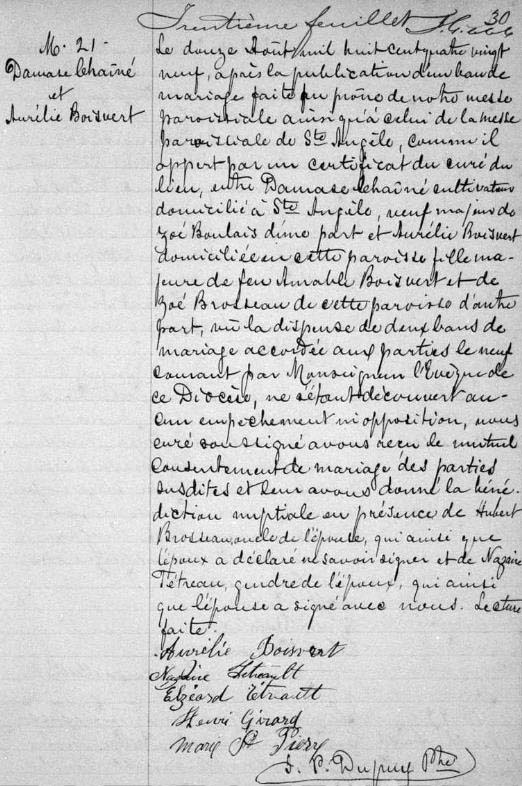 Trentième feuillet
30
M. 21 -
Damase Chaîné
et
Aurélie Boisvert
Le douze Août mil huit cent quatre vingt
neuf, après la publication d'un ban de
mariage faite au prône de notre messe
paroissiale ainsi qu'à celui de la messe
paroissiale de Ste Angèle, comme il
appert par un certificat du curé du
lieu, entre Damase Chaîné cultivateur
domicilié à Ste Angèle, veuf majeur de
Zoé Boulais d'une part et Aurélie Boisvert
domiciliée en cette paroisse fille ma-
jeure de feu Amable Boisvert et de
Zoé Brosseau de cette paroisse d'autre
part, vu la dispense de deux bans de
mariage accordée aux parties le neuf
courant par Monseigneur l'Evêque de
ce Diocèse, ne s'étant découvert au-
cun empêchement ni opposition, nous
curé soussigné avons reçu le mutuel
consentement de mariage des parties
susdites et leur avons donné la béné-
diction nuptiale en présence de Hubert
Brosseau oncle de l'épouse, qui ainsi que
l'époux a déclaré ne savoir signer et de Nazaire
Tétreau, gendre de l'époux, qui ainsi
que l'épouse a signé avec nous. Lecture
faite.
Aurélie Boisvert
Nazaire Tétrault
Elzéard Tétrault
Henri Girard
Marie St Pierre
J. P. Dupuy Ptre